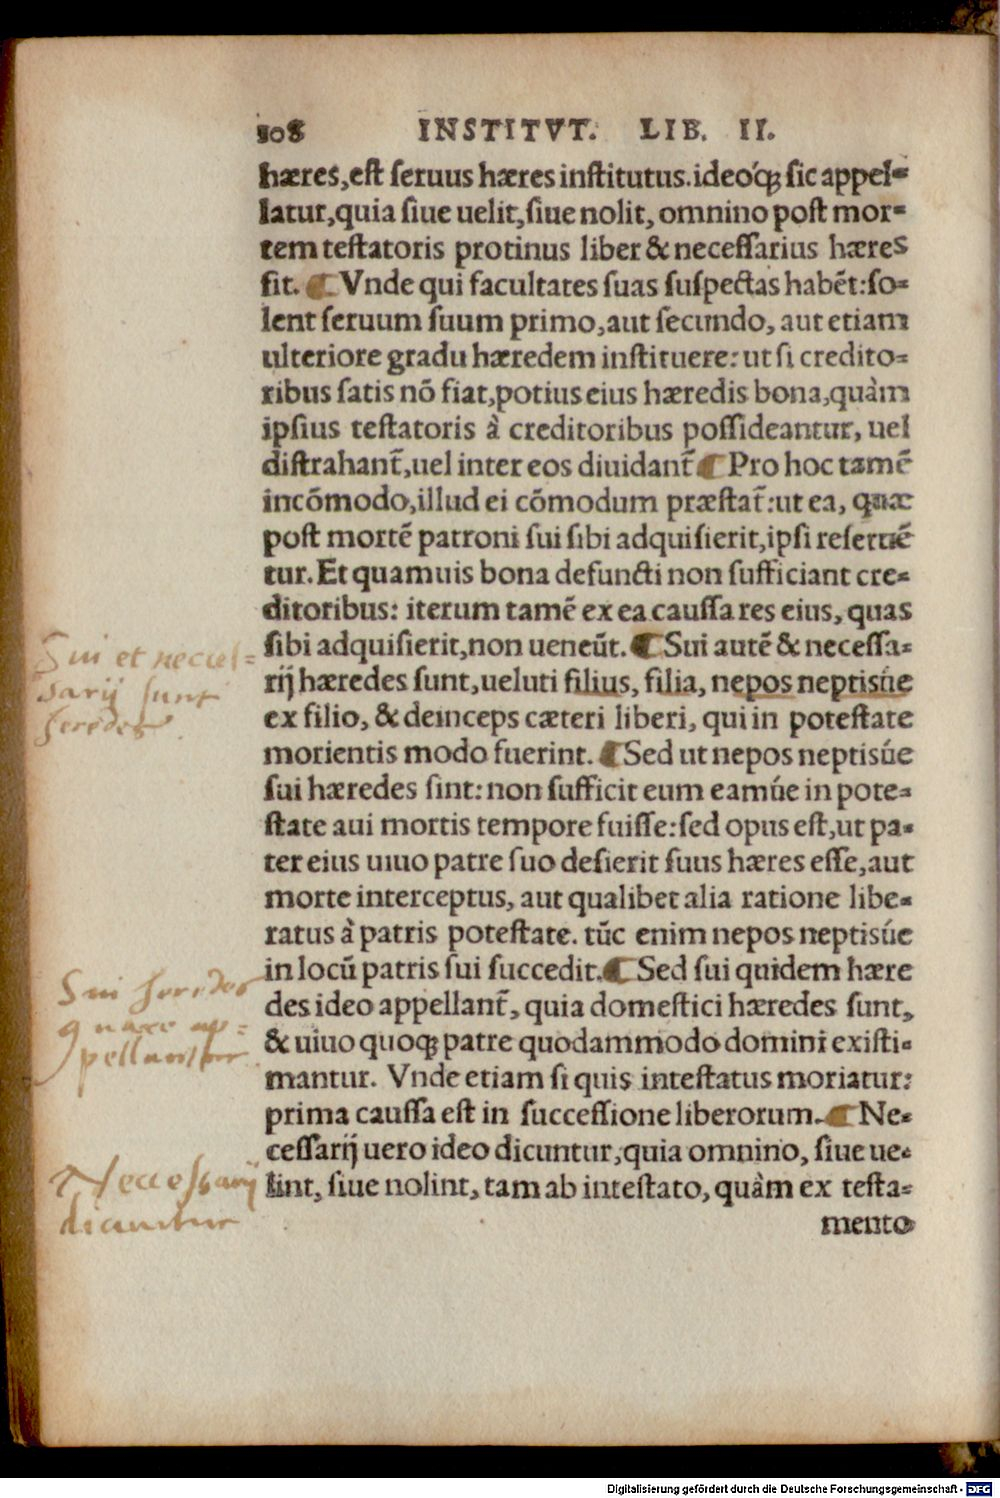 108 INSTITVT. LIB. II.
hæres, est seruus hæres institutus. ideóq; sic appel-
latur, quia siue uelit, siue nolit, omnino post mor-
tem testatoris protinus liber & necessarius hæres
fit. ¶ Vnde qui facultates suas suspectas habẽt: so-
lent seruum suum primo, aut secundo, aut etiam
ulteriore gradu hæredem instituere: ut si credito-
ribus satis nõ fiat, potius eius hæredis bona, quàm
ipsius testatoris à creditoribus possideantur, uel
distrahant̃, uel inter eos diuidant̃ ¶ Pro hoc tamẽ
incõmodo, illud ei cõmodum præstat̃: ut ea, quæ
post mortẽ patroni sui sibi adquisierit, ipsi reseruẽ
tur. Et quamuis bona defuncti non sufficiant cre-
ditoribus: iterum tamẽ ex ea caussa res eius, quas
sibi adquisierit, non ueneũt. ¶ Sui autẽ & necessa-
rij hæredes sunt, ueluti filius, filia, nepos neptisúe
ex filio, & deinceps cæteri liberi, qui in potestate
morientis modo fuerint. ¶ Sed ut nepos neptisúe
sui hæredes sint: non sufficit eum eamúe in pote-
state aui mortis tempore fuisse: sed opus est, ut pa-
ter eius uiuo patre suo desierit suus hæres esse, aut
morte interceptus, aut qualibet alia ratione libe-
ratus à patris potestate. tũc enim nepos neptisúe
in locũ patris sui succedit. ¶ Sed sui quidem hære
des ideo appellant̃, quia domestici hæredes sunt,
& uiuo quoq; patre quodammodo domini existi-
mantur. Vnde etiam si quis intestatus moriatur:
prima caussa est in successione liberorum. ¶ Ne-
cessarij uero ideo dicuntur, quia omnino, siue ue-
lint, siue nolint, tam ab intestato, quàm ex testa-
mento
Sui et neccès-
sarij sunt
heredes.
Sui heredes
quare ap-
pellantur
Neccessarij
dicuntur
Digitalisierung gefördert durch die Deutsche Forschungsgemeinschaft - DFG